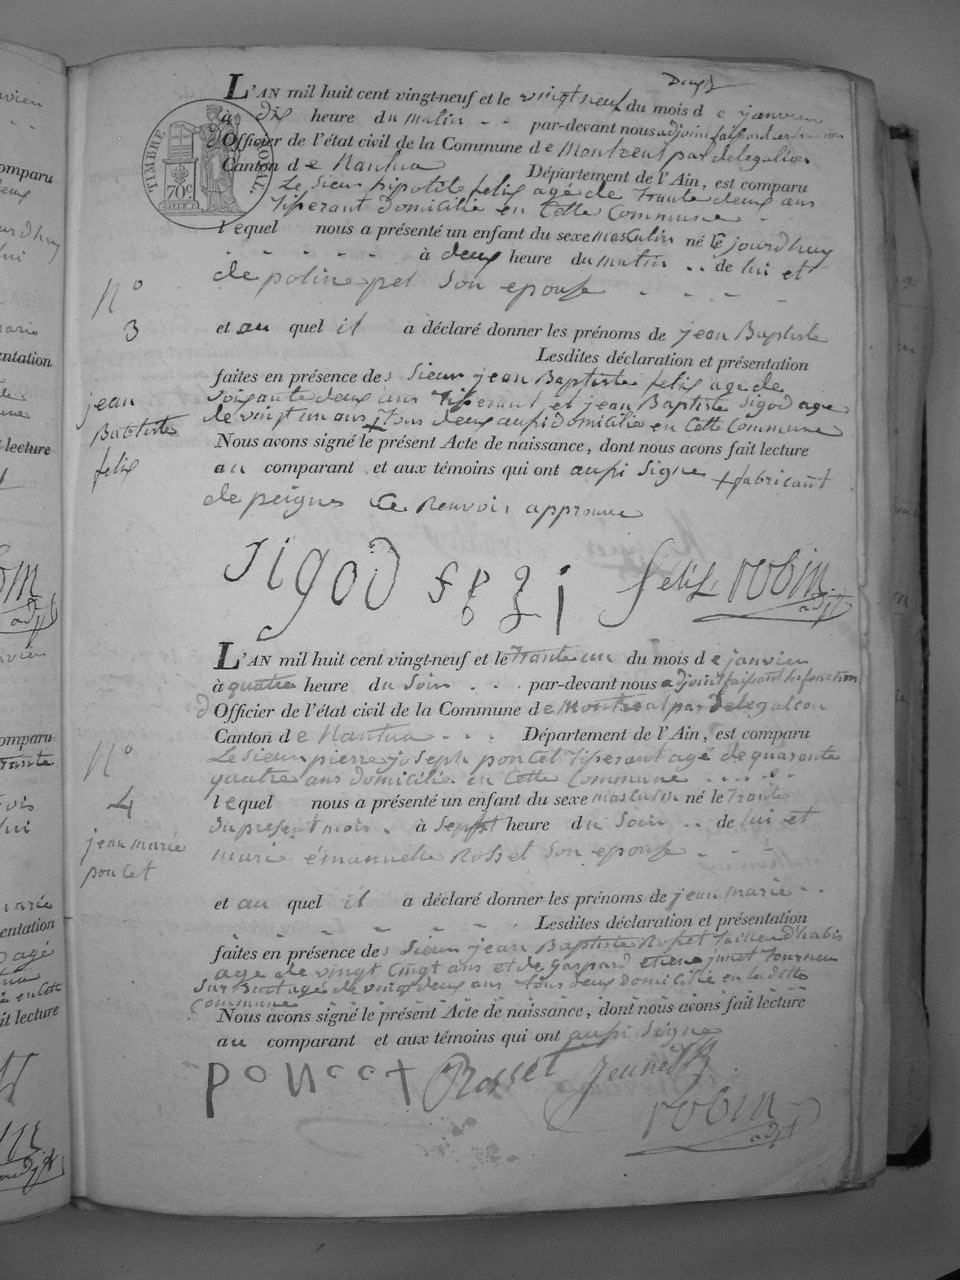 Deux
L'AN mil huit cent vingt-neuf et le vingt neuf du mois d e janvier
à dix heure du matin par-devant nous adjoint faisant
TIMBRE ROYAL 70c
d Officier de l'état civil de la Commune de Montreal par delegation
Canton d e Nantua Département de l'Ain, est comparu
Le Sieur hipolite felix agé de Trante deux ans
Tisserant domicilié en Cette Commune
lequel nous a présenté un enfant du sexe masculin né le jourdhuy
à deux heure du matin de lui et
de poline pet Son epouse
N°
3
jean
Babtiste
felix
et au quel il a déclaré donner les prénoms de jean Baptiste
Lesdites déclaration et présentation
faites en présence des Sieur jean Baptiste felix age de
Soixante deux ans Tisserant et jean Baptiste Sigod age
de vingt un ans + Tous deux aussi domicilié en Cette Commune
Nous avons signé le présent Acte de naissance, dont nous avons fait lecture
au comparant et aux témoins qui ont aussi Signe + fabricant
de peignes Ce Renvoir approuve
Sigod felix robin
adjt
L'AN mil huit cent vingt-neuf et le Trante un du mois d e janvier
à quatre heure du Soir par-devant nous adjoint faissant les fonction
d Officier de l'état civil de la Commune de Montreal par delegation
Canton d e Nantua Département de l'Ain, est comparu
Le Sieur pierre joseph poncet Tisserant agé de quarante
quatre ans domicilié en Cette Commune
N°
4
jean marie
poncet
lequel nous a présenté un enfant du sexe masculin né le Trante
du present mois à Sept heure du Soir de lui et
marie émanuelle Rosset Son epouse
et au quel il a déclaré donner les prénoms de jean marie
Lesdites déclaration et présentation
faites en présence des Sieur jean Baptiste Rosset d'habis
age de vingt Cingt ans et de Gaspard Etiene junet Tourneur
Sur Buit agé de vingt deux ans Tous deux domicilié en ladite
Commune
Nous avons signé le présent Acte de naissance, dont nous avons fait lecture
au comparant et aux témoins qui ont aussi Signe
poncet Rosset
robin
adjt